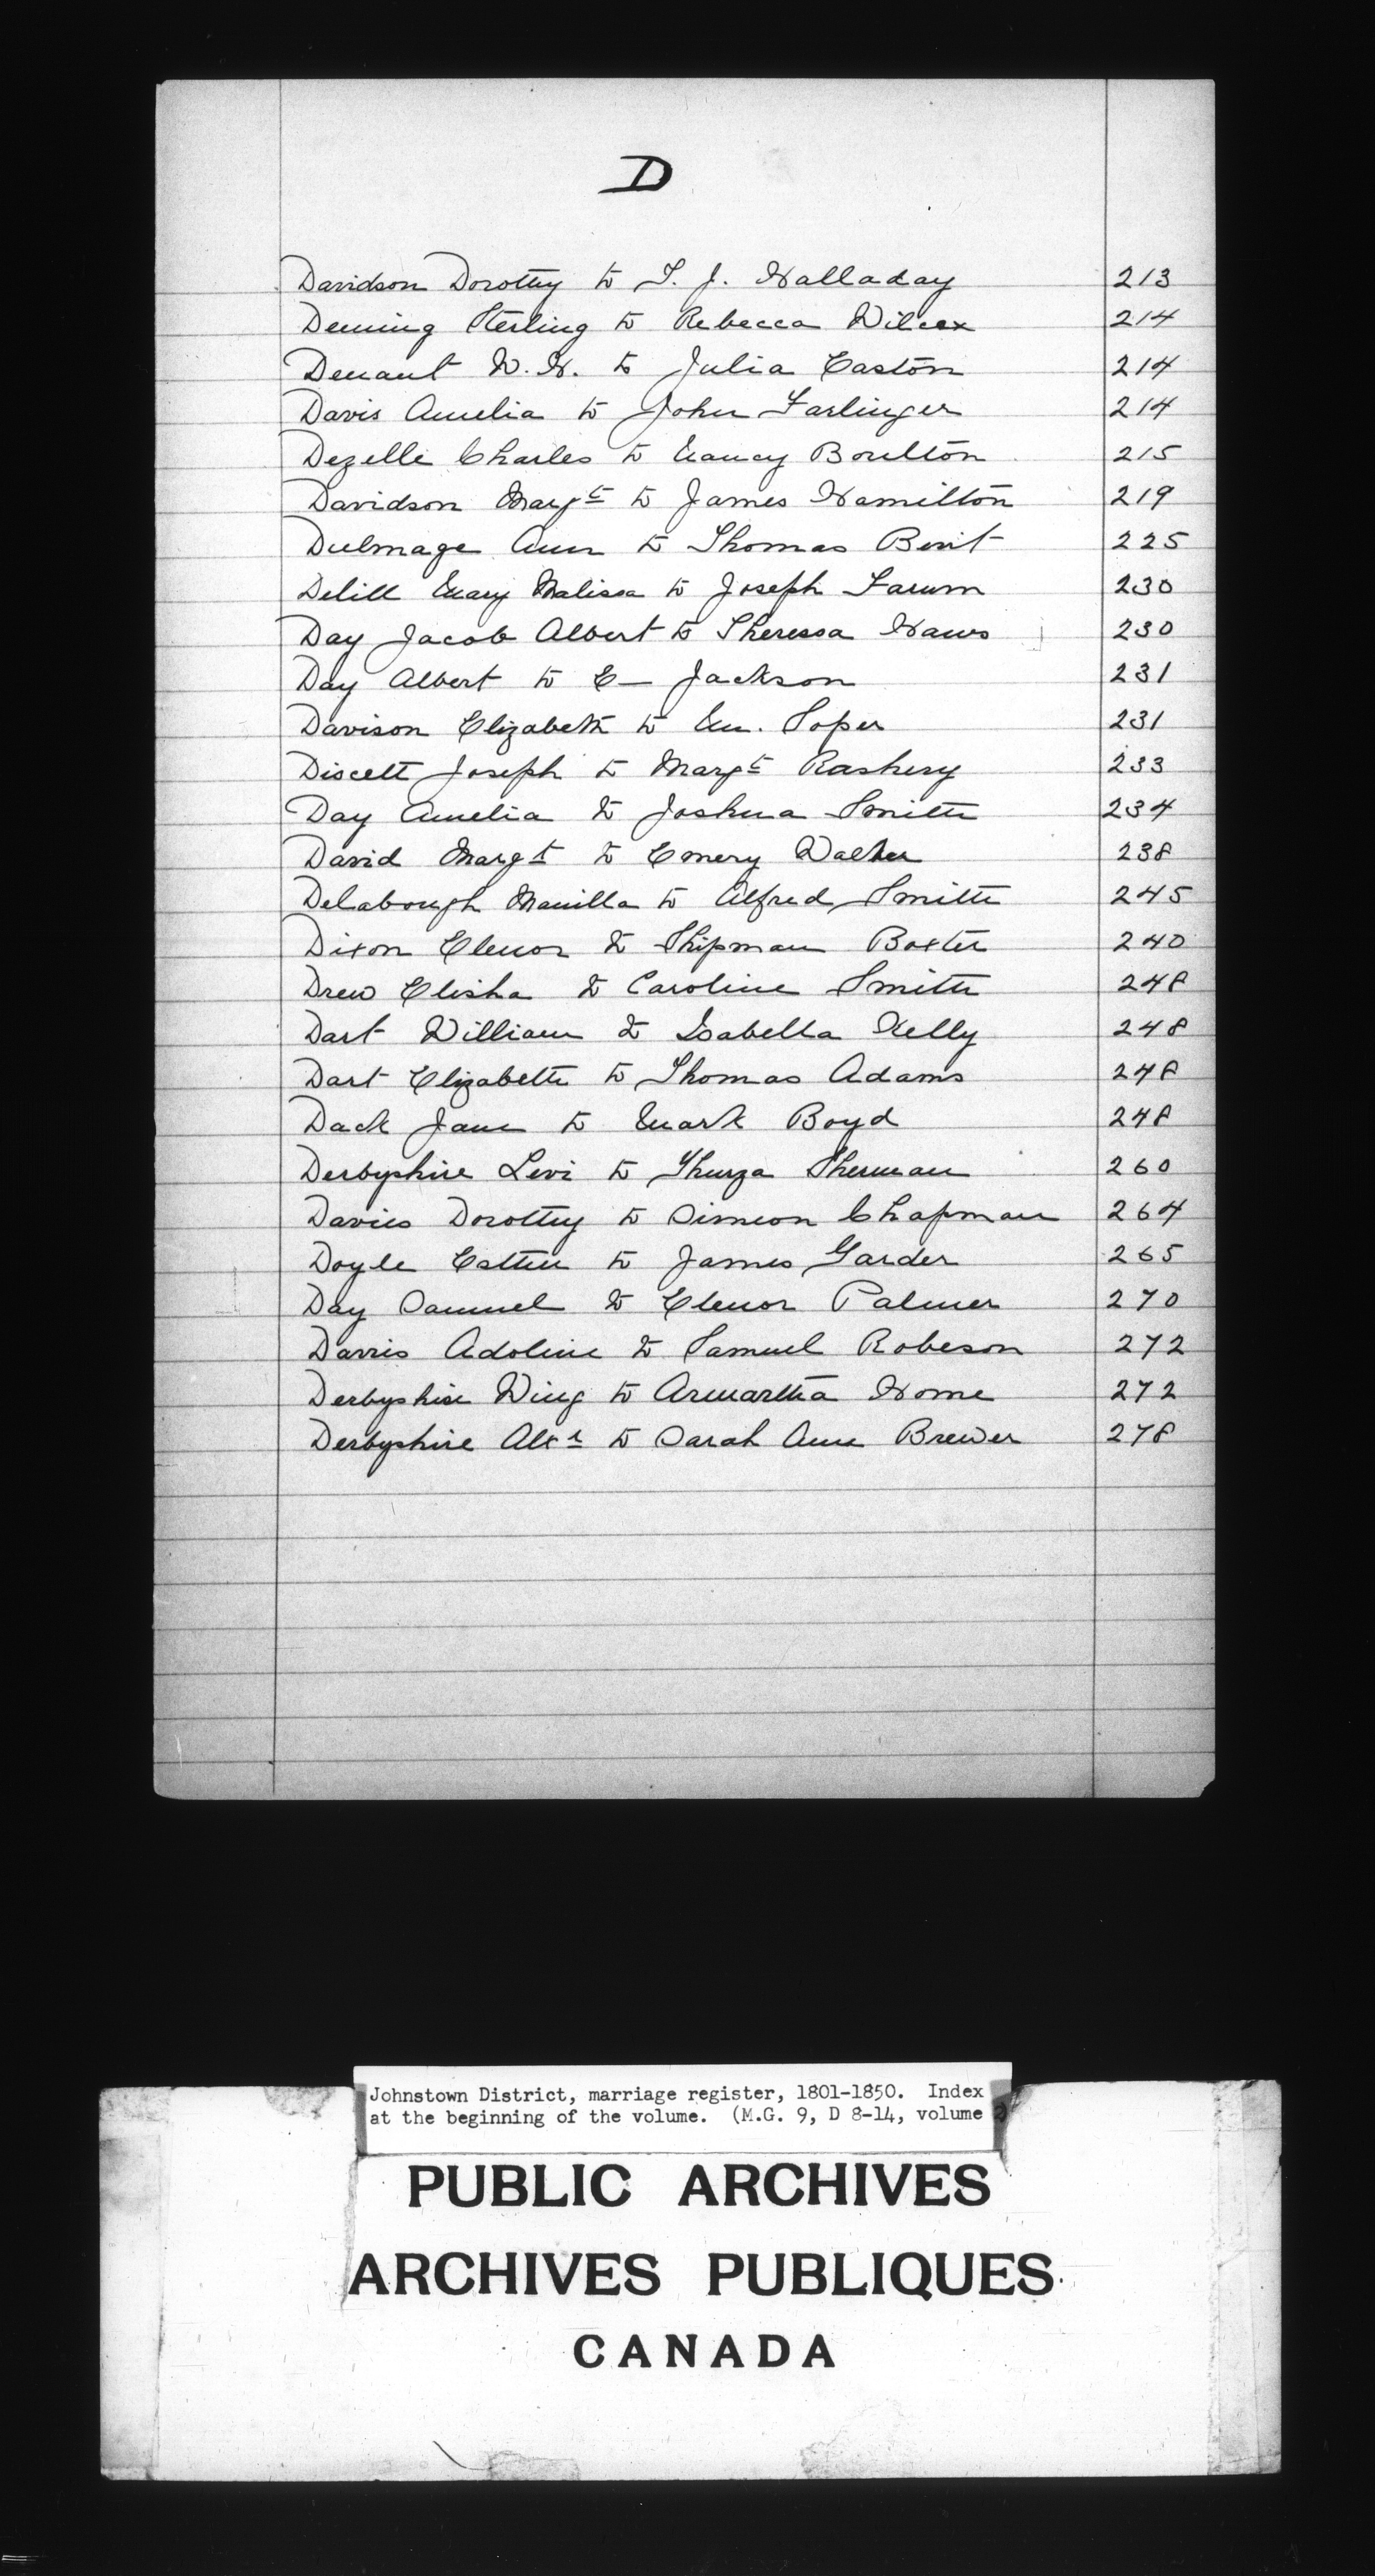 D
Davidson Dorothy to T. J. Halladay 213
Deming Sterling to Rebecca Wilcox 214
Denaut W. H. to Julia Easton 214
Davis Amelia to John Farlinger 214
Dezelle Charles to Nancy Boulton 215
Davidson Margt to James Hamilton 219
Dulmage Ann to Thomas 225
Delill Mary Malissa to Joseph 230
Day Jacob Albert to Theressa Haws 230
Day Albert to E— Jackson 231
Davison Elizabeth to Wm. Soper 231
Discett Joseph to Margt 233
Day Amelia to Joshua Smith 234
David Margt to Emery Walker 238
Delabough Manilla to Alfred Smith 245
Dixon Elenor to Shipman Baxter 240
Drew Elisha to Caroline Smith 248
Dart William to Isabella Kelly 248
Dart Elizabeth to Thomas Adams 248
Dack Jane to Mark Boyd 248
Derbyshire Levi to Thurza Sherman 260
Davies Dorothy to Simeon Chapman 264
Doyle Esther to James Garder 265
Day Samuel to Elenor Palmer 270
Davis Adoline to Samuel Robeson 272
Derbyshire Wing to Armartha Horne 272
Derbyshire Alxr to Sarah Ann Brewer 278
Johnstown District, marriage register, 1801-1850. Index
at the beginning of the volume. (M.G. 9, D 8-14, volume
PUBLIC ARCHIVES
ARCHIVES PUBLIQUES
CANADA